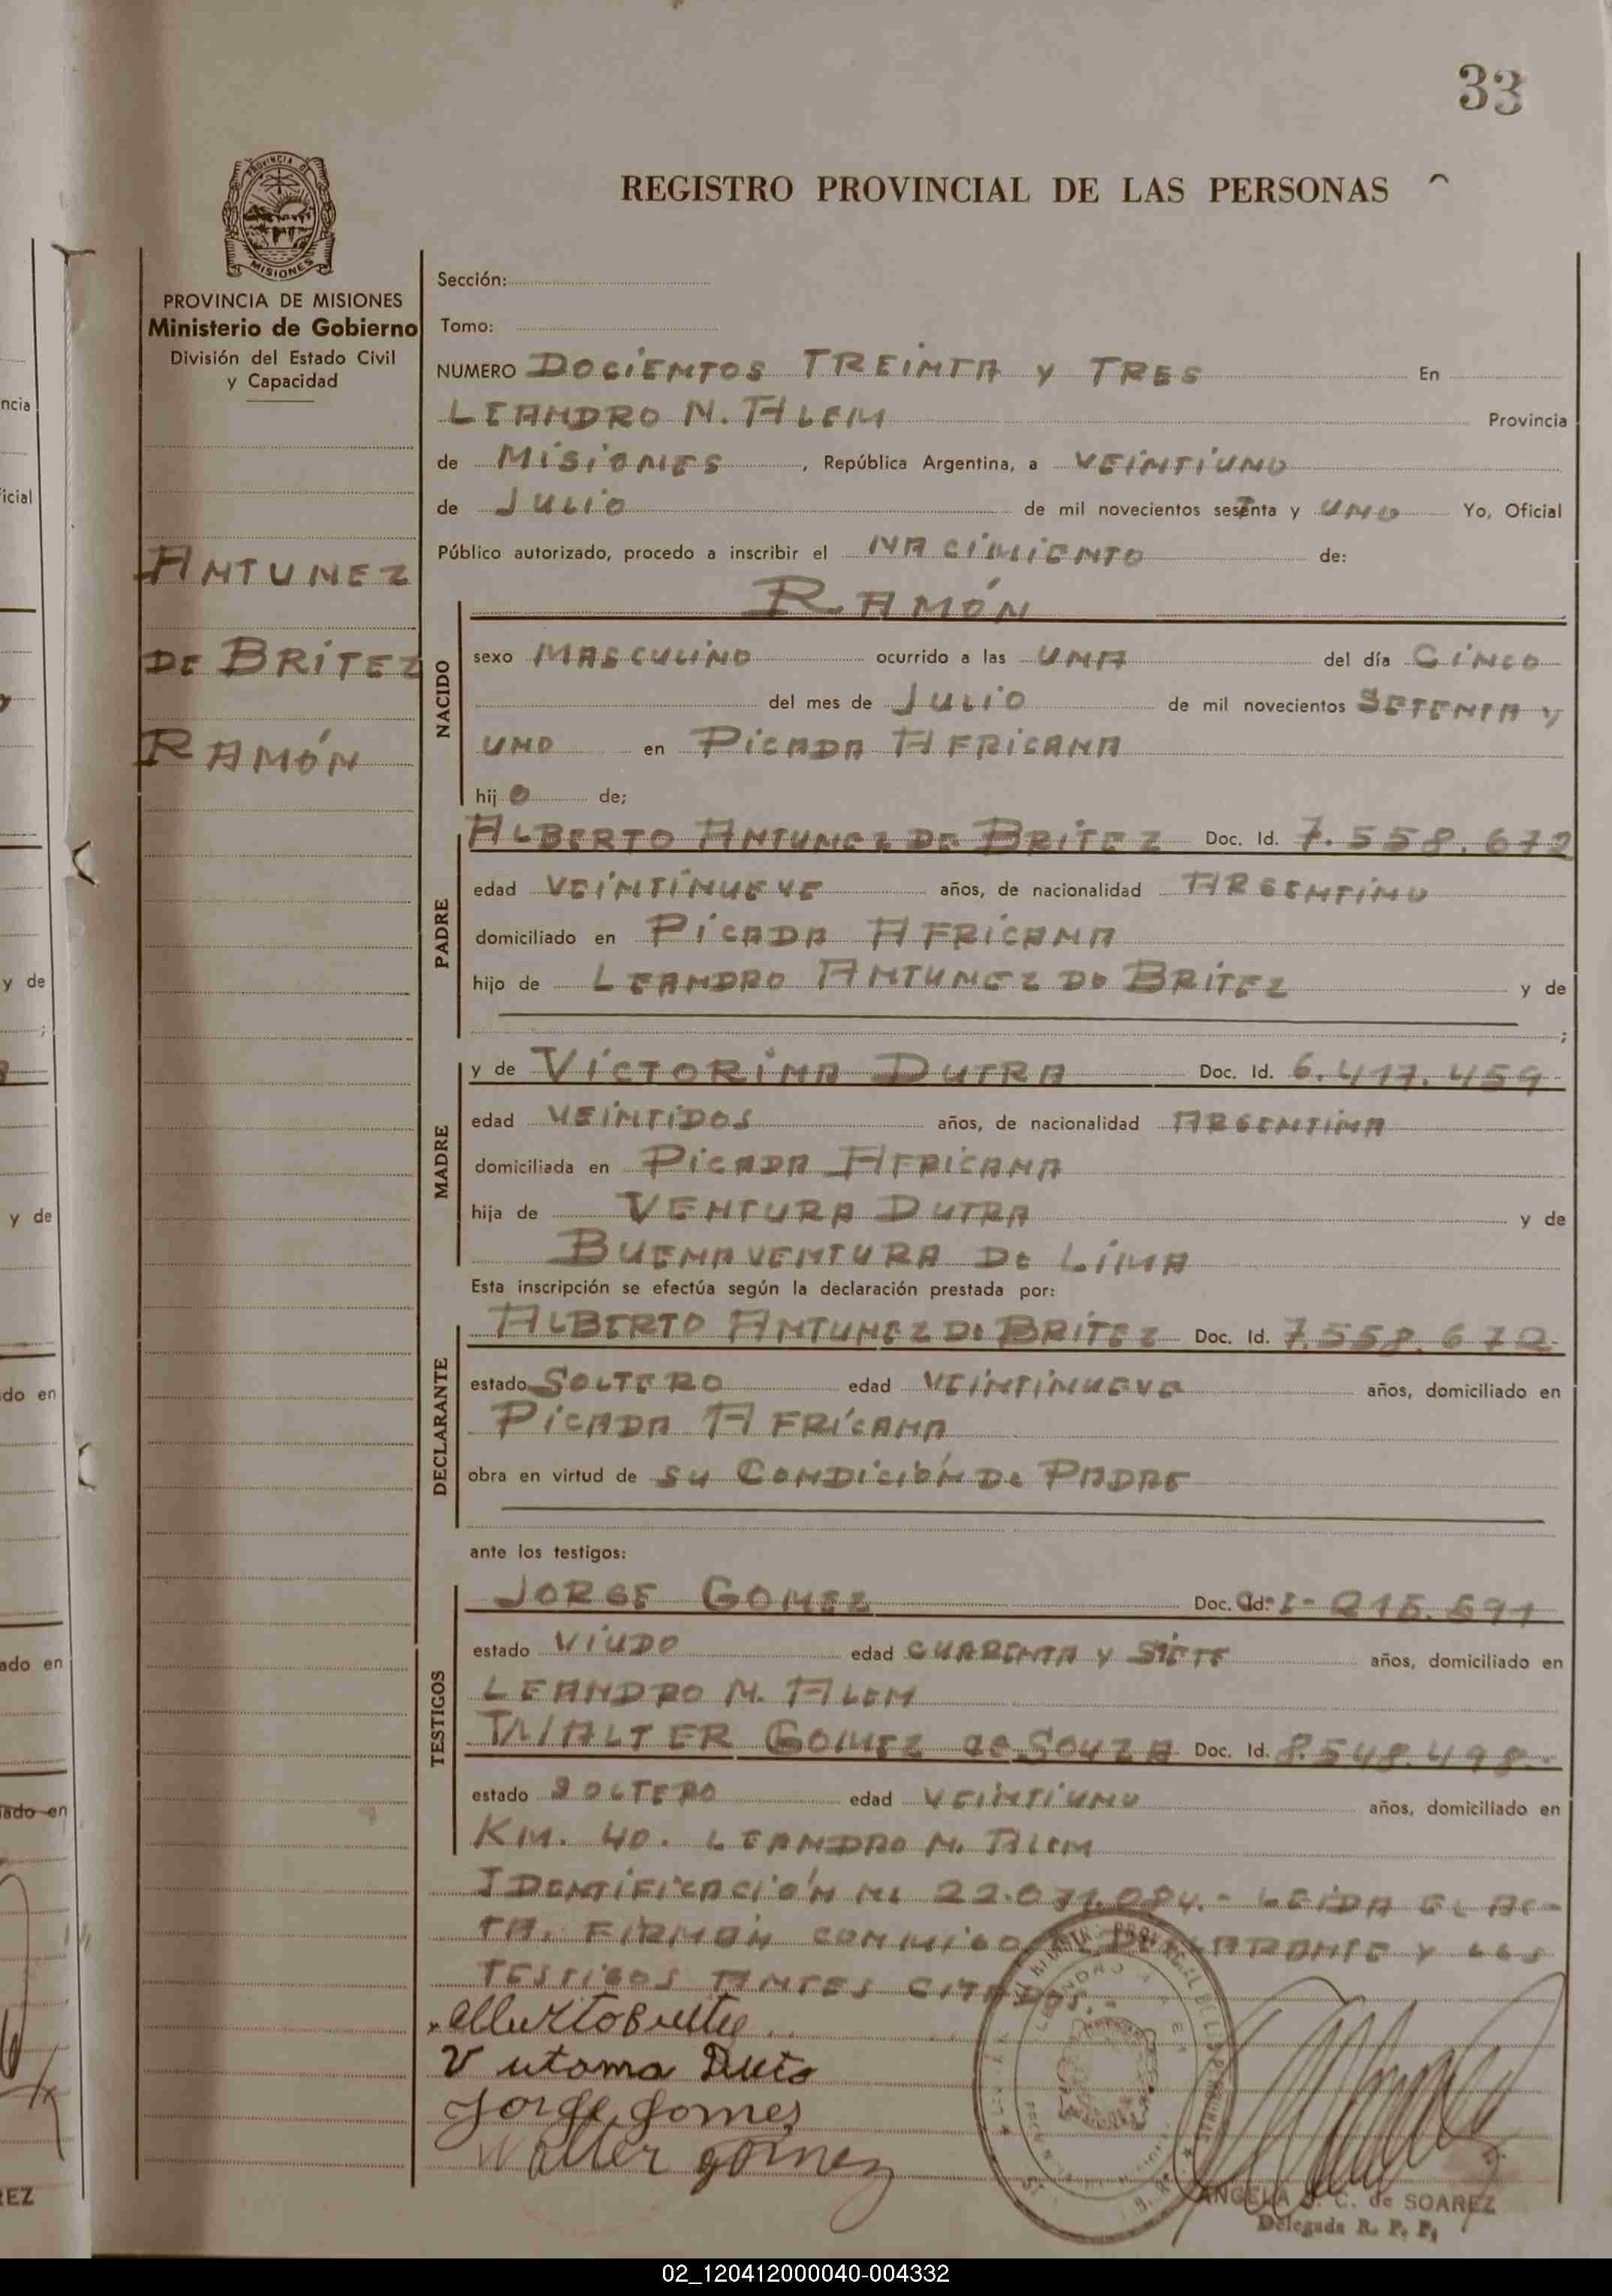 33
REGISTRO PROVINCIAL DE LAS PERSONAS
PROVINCIA DE MISIONES
Ministerio de Gobierno
División del Estado Civil
y Capacidad
ANTUNEZ
DE BRITEZ
RAMÓN
Sección:
Tomo:
NUMERO DOCIENTOS TREINTA Y TRES En
LEANDRO N. ALEM Provincia
de MISIONES, República Argentina, a VEINTIUNO
de JULIO de mil novecientos setenta y UNO Yo, Oficial
Público autorizado, procedo a inscribir el NACIMIENTO de:
NACIDO
RAMÓN
sexo MASCULINO ocurrido a las UNA del día CINCO
del mes de JULIO de mil novecientos SETENTA Y
UNO en PICADA AFRICANA
hijo de;
PADRE
ALBERTO ANTUNEZ DE BRITEZ Doc. Id. 7.558.672
edad VEINTINUEVE años, de nacionalidad ARGENTINO
domiciliado en PICADA AFRICANA
hijo de LEANDRO ANTUNEZ DE BRITEZ y de
;
MADRE
y de VICTORINA DUTRA Doc. Id. 6.417.459
edad VEINTIDOS años, de nacionalidad ARGENTINA
domiciliada en PICADA AFRICANA
hija de VENTURA DUTRA y de
BUENAVENTURA DE LIMA
Esta inscripción se efectúa según la declaración prestada por:
DECLARANTE
ALBERTO ANTUNEZ DE BRITEZ Doc. Id. 7.558.672
estado SOLTERO edad VEINTINUEVE años, domiciliado en
PICADA AFRICANA
obra en virtud de SU CONDICIÓN DE PADRE
ante los testigos:
TESTIGOS
JORGE GOMEZ Doc. Id.
estado VIUDO edad CUARENTA Y SIETE años, domiciliado en
LEANDRO N. ALEM
WALTER GOMEZ de SOUZA Doc. Id. 8.548.498.-
estado SOLTERO edad VEINTIUNO años, domiciliado en
KM. 40. LEANDRO N. ALEM
IDENTIFICACIÓN 22.071.084.- LEIDA EL AC-
TA, FIRMAN CONMIGO EL DECLARANTE Y LOS
TESTIGOS ANTES CITADOS.-
Jorge Gomes
Walter gomez
ANGELA C. de SOAREZ
Delegada R. P. P.
ncia
icial
y de
;
y de
do en
ado en
ado en
EZ
02_120412000040-004332